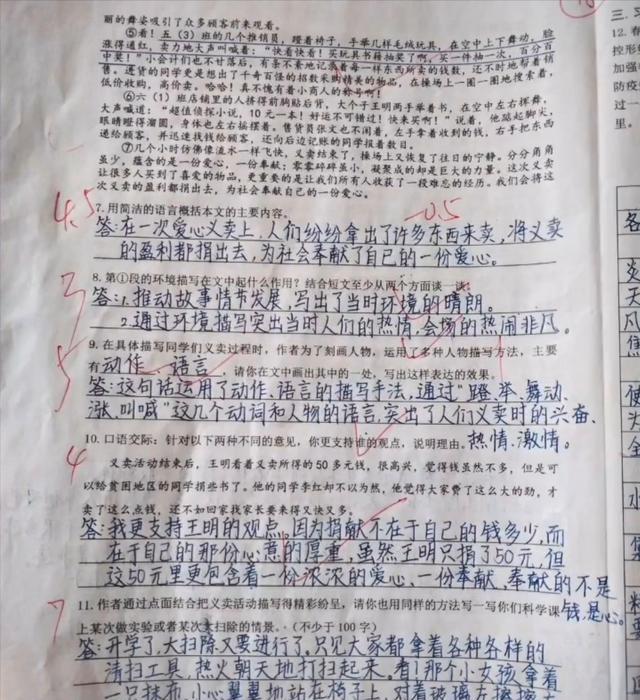 丽的舞姿吸引了众多顾客前来观看。
⑤看!五(3)班的几个推销员,蹬着椅子,手举几样毛绒玩具,在空中上下舞动,脸
涨得通红,卖力地大声叫喊着:“快看快看!买玩具书籍抽奖了啊,买一件抽一次,百分百
中奖!”小会计们也不甘落后,有条不紊地记录着每一样东西所卖的钱数,还不时地帮着销
售。进货的同学更是想出了千奇百怪的招数来购精美的物品,在操场上一圈一圈地搜索着,
低价收购,高价卖。哈哈!真不愧有着小商人的称号啊!
⑥六(1)班店铺里的人挤得前胸贴后背,大个子王明两手举着书,在空中左右挥舞,
大声喊道:“超值侦探小说,10元一本!好运不可错过!快来买啊!”说着,他踮起脚尖,
眼睛瞪得溜圆,身体也左右摇摆着。售货员张文也不闲着,左手拿着收到的钱,右手把东西
递给顾客,并迅速找钱给顾客,还向后边记账的同学报着数目。
⑦几个小时仿佛像流水一样飞快,义卖结束了,操场上又恢复了往日的宁静。分分角角
虽少,蕴含的是一份爱心,一份奉献;零零碎碎虽小,凝聚成的却是巨大的力量。这次义卖
让很多人买到了喜爱的物品,更重要的是让我们所有人收获了一段难忘的经历。我们会将这
次义卖的盈利都捐出去,为社会奉献自己的一份爱心。
4.5
7.用简洁的语言概括本文的主要内容。 -0.5
答:在一次爱心义卖上,人们纷纷拿出了许多东西来卖,将义卖
的盈利都捐出去,为社会奉献了自己的一份爱心。
8.第①段的环境描写在文中起什么作用?结合短文至少从两个方面谈一谈。
答:1.推动故事情节发展,写出了当时环境的晴朗。
2.通过环境描写突出当时人们的热情,会场的热闹非凡。
9.在具体描写同学们义卖过程时,作者为了刻画人物,运用了多种人物描写方法,主要
有动作、语言,请你在文中画出其中的一处,写出这样表达的效果。
5
答:这句话运用了动作、语言的描写手法,通过“蹬、举、舞动、
涨、叫喊”这几个动词和人物的语言,突出了人们义卖时的兴奋、
热情、激情。
10.口语交际:针对以下两种不同的意见,你更支持谁的观点,说明理由。
4
义卖活动结束后,王明看着义卖所得的50多元钱,很高兴,觉得钱虽然不多,但是可
以给贫困地区的同学捐些书了。他的同学李红却不以为然,他觉得大家费了这么大的劲,才
卖了这么点钱,还不如回家我家长要来得又快又多。
答:我更支持王明的观点。因为捐献不在于自己的钱多少,而
在于自己的那份心意的厚重,虽然王明只捐了50元,但
这50元里更包含着一份浓浓的爱心、一份奉献,奉献的不是
钱,是心。
7
11.作者通过点面结合把义卖活动描写得精彩纷呈,请你也用同样的方法写一写你们科学课
上某次做实验或者某次大扫除的情景。(不少于100字)
答:开学了,大扫除又要进行了。只见大家都拿着各种各样的
清扫工具,热火朝天地打扫起来。看!那个小女孩拿着
一只抹布,小心翼翼地站在椅子上,对着玻璃
三
12.春
控形
加强
防疫
过一
里。